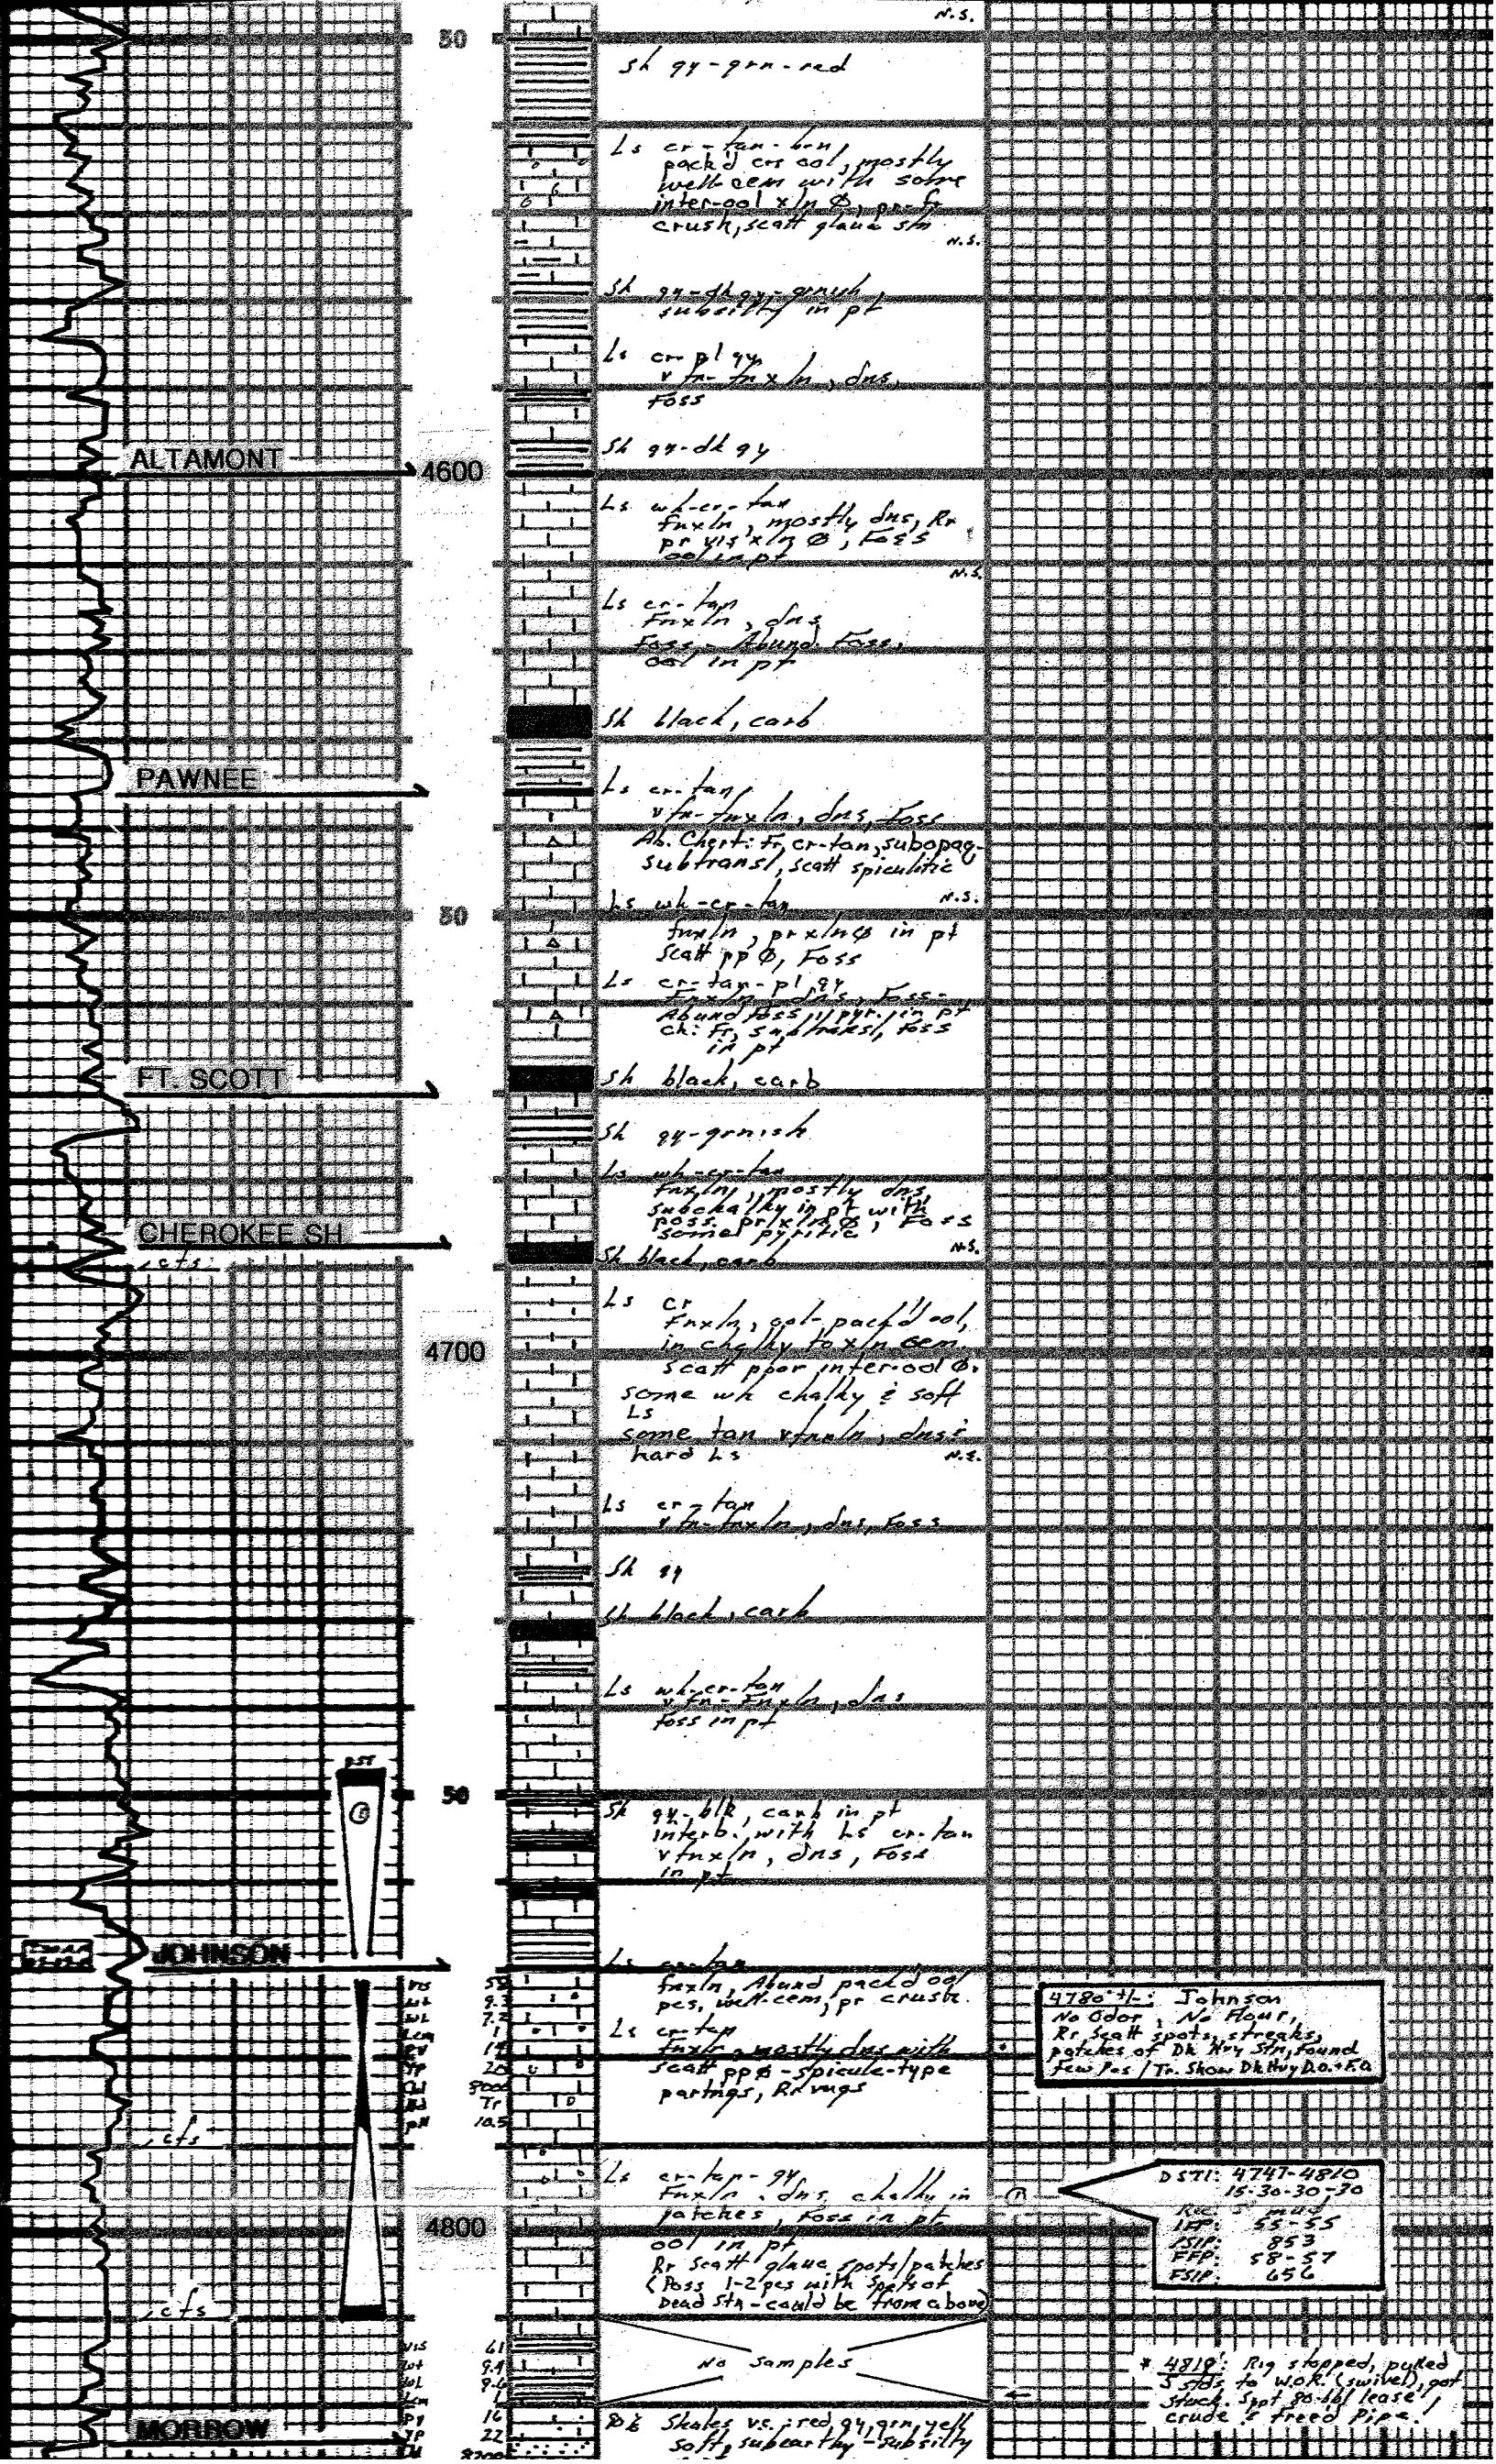 N.S.
50
Sh gy-grn-red
Ls cr-tan-brn
pack'd crs ool, mostly
well-cem with some
inter-ool xln Ø, pr-fr
crush, scatt glauc stn
N.S.
Sh gy-dk gy-grnish
subsilty in pt
Ls cr-pl gy
v fn-fnxln, dns,
Foss
Sh gy-dk gy
ALTAMONT
4600
Ls wh-cr-tan
fnxln, mostly dns, Rr
pr vis xln Ø, Foss
ool in pt
N.S.
Ls cr-tan
Fnxln, dns
Foss - Abund. Foss,
ool in pt
Sh black, carb
PAWNEE
Ls cr-tan
v fn-fnxln, dns, Foss
Ab. Chert: Fr, cr-tan, subopaq-
subtransl, scatt spiculitic
N.S.
50
Ls wh-cr-tan
fnxln, pr xln Ø in pt
Scatt pp Ø, Foss
Ls cr-tan-pl gy
Fnxln, dns, Foss-
Abund foss, pyr. in pt
Ch: Fr, subtransl, Foss
in pt
FT. SCOTT
Sh black, carb
Sh gy-grnish
Ls wh-cr-tan
Fnxln, mostly dns,
subchalky in pt with
poss. pr xln Ø, Foss
some pyritic
N.S.
CHEROKEE SH
cfs
Sh black, carb
Ls cr
Fnxln, ool-pack'd ool,
in chalky to xln cem
4700
scatt poor inter-ool Ø.
some wh chalky & soft
Ls
some tan vfnxln, dns &
hard Ls
N.S.
Ls cr-tan
v fn-fnxln, dns, Foss
Sh gy
Sh black, carb
Ls wh-cr-tan
v fn-Fnxln, dns
Foss in pt
DST
①
50
Sh gy-blk, carb in pt
interb. with Ls cr-tan
vfnxln, dns, Foss
in pt
JOHNSON
Ls cr-tan
fnxln, Abund pack'd ool
pcs, well-cem, pr crush.
Vis
Wt 9.3
WL
Lcm 1
PV
YP 20
Chl
Tr
pH 10.5
Ls cr-tan
fnxln, mostly dns with
scatt pp Ø - spicule-type
partngs, Rr vugs
4780 +/-: Johnson
No Odor, No Flour,
Rr, Scatt spots, streaks,
patches of Dk Hvy Stn, found
few pcs / Tr. Show Dk Hvy D.O. + F.O.
cfs
Ls cr-tan-gy
Fnxln, dns, chalky in
patches, Foss in pt
4800
ool in pt
Rr Scatt glauc spots/patches
(Poss 1-2 pcs with spots of
Dead Stn - could be from above)
①
DST1: 4747-4810
15-30-30-30
Rec 5' mud
IFP: 55-55
ISIP: 853
FFP: 58-57
FSIP: 656
cfs
No samples
Vis 61
Wt 9.4
WL
Lcm 1
PV 16
YP 22
* 4819': Rig stopped, pulled
5 stds to W.O.R. (swivel), got
stuck. Spot 80-bbl lease
crude & freed pipe.
MORROW
Shales vc: red, gy, grn, yell
soft, subearthy - subsilty